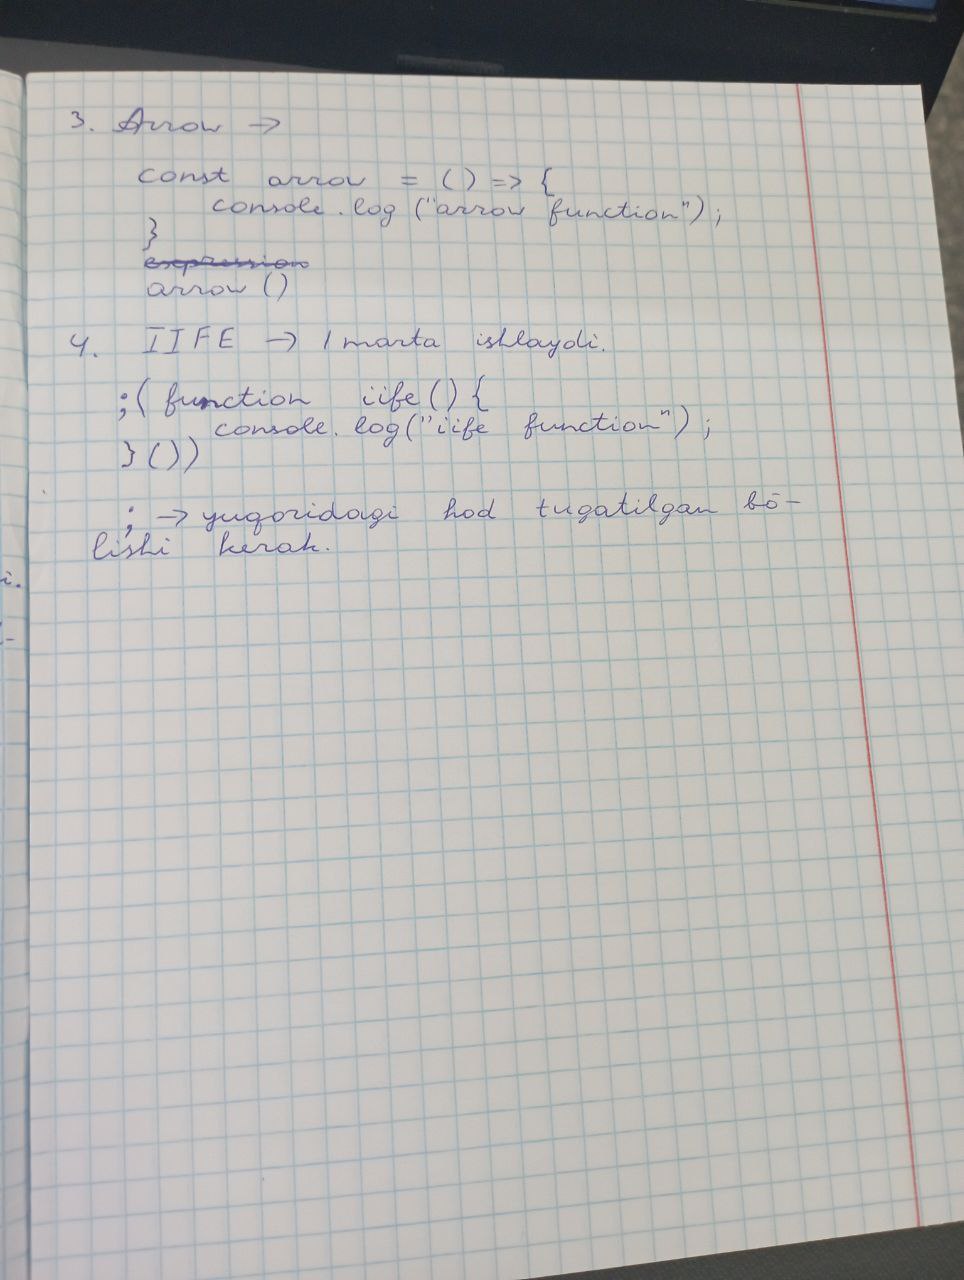 3. Arrow →
const arrow = () => {
console.log ("arrow function");
}
arrow ()
4. IIFE → 1 marta ishlaydi.
;( function iife () {
console.log("iife function");
} ())
; → yuqoridagi kod tugatilgan bō-
lishi kerak.
i.